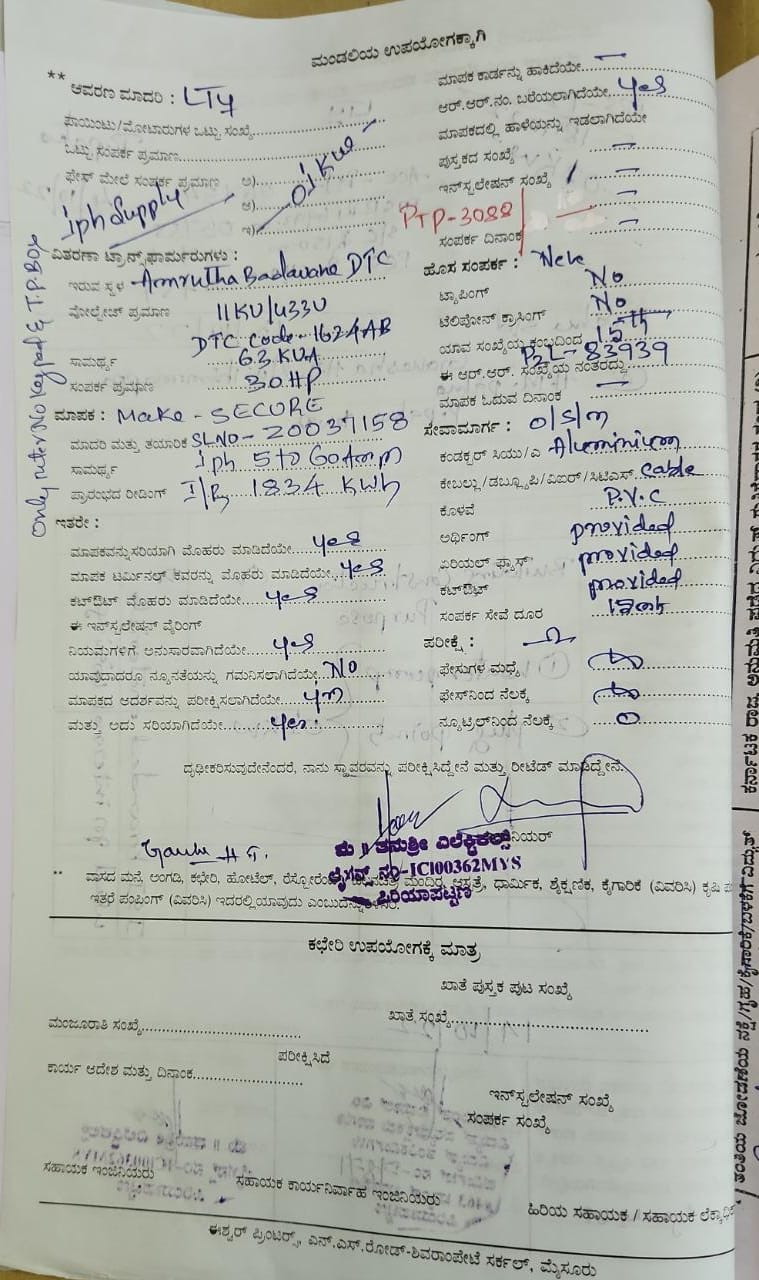 ಮಂಡಲಿಯ ಉಪಯೋಗಕ್ಕಾಗಿ
** ಆವರಣ ಮಾದರಿ : LT4
ಪಾಯಿಂಟು/ಮೋಟಾರುಗಳ ಒಟ್ಟು ಸಂಖ್ಯೆ
ಒಟ್ಟು ಸಂಪರ್ಕ ಪ್ರಮಾಣ
ಫೇಸ್ ಮೇಲೆ ಸಂಪರ್ಕ ಪ್ರಮಾಣ ಅ)
ಆ)
ಇ)
1ph Supply
ವಿತರಣಾ ಟ್ರಾನ್ಸ್‌ಫಾರ್ಮರುಗಳು :
ಇರುವ ಸ್ಥಳ Amrutha Badavane DTC
ವೋಲ್ಟೇಜ್ ಪ್ರಮಾಣ 11KV/433V
DTC Code - 1624AB
ಸಾಮರ್ಥ್ಯ 63 KVA
ಸಂಪರ್ಕ ಪ್ರಮಾಣ 30HP
ಮಾಪಕ : Make - SECURE
ಮಾದರಿ ಮತ್ತು ತಯಾರಿಕೆ SLNO - 20037158
ಸಾಮರ್ಥ್ಯ 1ph 5 to 60Amp
ಪ್ರಾರಂಭದ ರೀಡಿಂಗ್ I/R 1834 KWh
ಇತರೇ :
ಮಾಪಕವನ್ನು ಸರಿಯಾಗಿ ಮೊಹರು ಮಾಡಿದೆಯೇ yes
ಮಾಪಕ ಟರ್ಮಿನಲ್ ಕವರನ್ನು ಮೊಹರು ಮಾಡಿದೆಯೇ yes
ಕಟ್‌ಔಟ್ ಮೊಹರು ಮಾಡಿದೆಯೇ yes
ಈ ಇನ್‌ಸ್ಟಲೇಷನ್ ವೈರಿಂಗ್
ನಿಯಮಗಳಿಗೆ ಅನುಸಾರವಾಗಿದೆಯೇ yes
ಯಾವುದಾದರೂ ನ್ಯೂನತೆಯನ್ನು ಗಮನಿಸಲಾಗಿದೆಯೇ No
ಮಾಪಕದ ಆದರ್ಶವನ್ನು ಪರೀಕ್ಷಿಸಲಾಗಿದೆಯೇ yes
ಮತ್ತು ಅದು ಸರಿಯಾಗಿದೆಯೇ yes
ಮಾಪಕ ಕಾರ್ಡನ್ನು ಹಾಕಿದೆಯೇ
ಆರ್.ಆರ್.ನಂ. ಬರೆಯಲಾಗಿದೆಯೇ yes
ಮಾಪಕದಲ್ಲಿ ಹಾಳೆಯನ್ನು ಇಡಲಾಗಿದೆಯೇ
ಪುಸ್ತಕದ ಸಂಖ್ಯೆ
ಇನ್‌ಸ್ಟಲೇಷನ್ ಸಂಖ್ಯೆ
PTP-3088
ಸಂಪರ್ಕ ದಿನಾಂಕ
ಹೊಸ ಸಂಪರ್ಕ : New
ಟ್ಯಾಪಿಂಗ್ No
ಟೆಲಿಪೋನ್ ಕ್ರಾಸಿಂಗ್ No
ಯಾವ ಸಂಖ್ಯೆಯ ಕಂಬದಿಂದ 15th
ಈ ಆರ್.ಆರ್. ಸಂಖ್ಯೆಯ ನಂತರದ್ದು P2L-83939
ಮಾಪಕ ಓದುವ ದಿನಾಂಕ
ಸೇವಾಮಾರ್ಗ : O/S/m
ಕಂಡಕ್ಟರ್ ಸಿಯು/ಎ Aluminium
ಕೇಬಲ್ಲು/ಡಬ್ಲ್ಯೂಪಿ/ವಿಐರ್/ಸಿಟಿಎಸ್ Cable
ಕೊಳವೆ P.V.C
ಅರ್ಥಿಂಗ್ provided
ಏರಿಯಲ್ ಫ್ಯೂಸ್ provided
ಕಟ್‌ಔಟ್ provided
ಸಂಪರ್ಕ ಸೇವೆ ದೂರ
ಪರೀಕ್ಷೆ : Ω
ಫೇಸುಗಳ ಮಧ್ಯೆ
ಫೇಸ್‌ನಿಂದ ನೆಲಕ್ಕೆ
ನ್ಯೂಟ್ರಲ್‌ನಿಂದ ನೆಲಕ್ಕೆ 0
Only meter No Keypad & T.P. Box
ದೃಢೀಕರಿಸುವುದೇನೆಂದರೆ, ನಾನು ಸ್ಥಾವರವನ್ನು ಪರೀಕ್ಷಿಸಿದ್ದೇನೆ ಮತ್ತು ರೀಟೆಡ್ ಮಾಡಿದ್ದೇನೆ.
ನಿಯರ್
ಮ॥ ತನುಶ್ರೀ ಎಲೆಕ್ಟ್ರಿಕಲ್ಸ್
ಲೈಸನ್ಸ್ ನಂ-ICI00362MYS
ಪಿರಿಯಾಪಟ್ಟಣ
** ವಾಸದ ಮನೆ, ಅಂಗಡಿ, ಕಛೇರಿ, ಹೋಟೆಲ್, ಮಂದಿರ, ಆಸ್ಪತ್ರೆ, ಧಾರ್ಮಿಕ, ಶೈಕ್ಷಣಿಕ, ಕೈಗಾರಿಕೆ (ವಿವರಿಸಿ) ಕೃಷಿ
ಇತರೆ ಪಂಪಿಂಗ್ (ವಿವರಿಸಿ) ಇದರಲ್ಲಿ ಯಾವುದು
ಕಛೇರಿ ಉಪಯೋಗಕ್ಕೆ ಮಾತ್ರ
ಖಾತೆ ಪುಸ್ತಕ ಪುಟ ಸಂಖ್ಯೆ
ಮಂಜೂರಾತಿ ಸಂಖ್ಯೆ
ಖಾತೆ ಸಂಖ್ಯೆ
ಪರೀಕ್ಷಿಸಿದೆ
ಕಾರ್ಯ ಆದೇಶ ಮತ್ತು ದಿನಾಂಕ
ಇನ್‌ಸ್ಟಲೇಷನ್ ಸಂಖ್ಯೆ
ಸಂಪರ್ಕ ಸಂಖ್ಯೆ
ಸಹಾಯಕ ಇಂಜಿನಿಯರು
ಸಹಾಯಕ ಕಾರ್ಯನಿರ್ವಾಹ ಇಂಜಿನಿಯರು
ಹಿರಿಯ ಸಹಾಯಕ / ಸಹಾಯಕ
ಈಶ್ವರ್ ಪ್ರಿಂಟರ್ಸ್, ಎನ್.ಎಸ್.ರೋಡ್-ಶಿವರಾಂಪೇಟೆ ಸರ್ಕಲ್, ಮೈಸೂರು